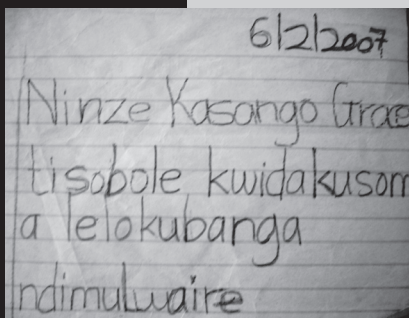 6/2/2007
Ninze Kasango Grae
tisobole kwidakusom
a lelokubanga
ndimulwaire